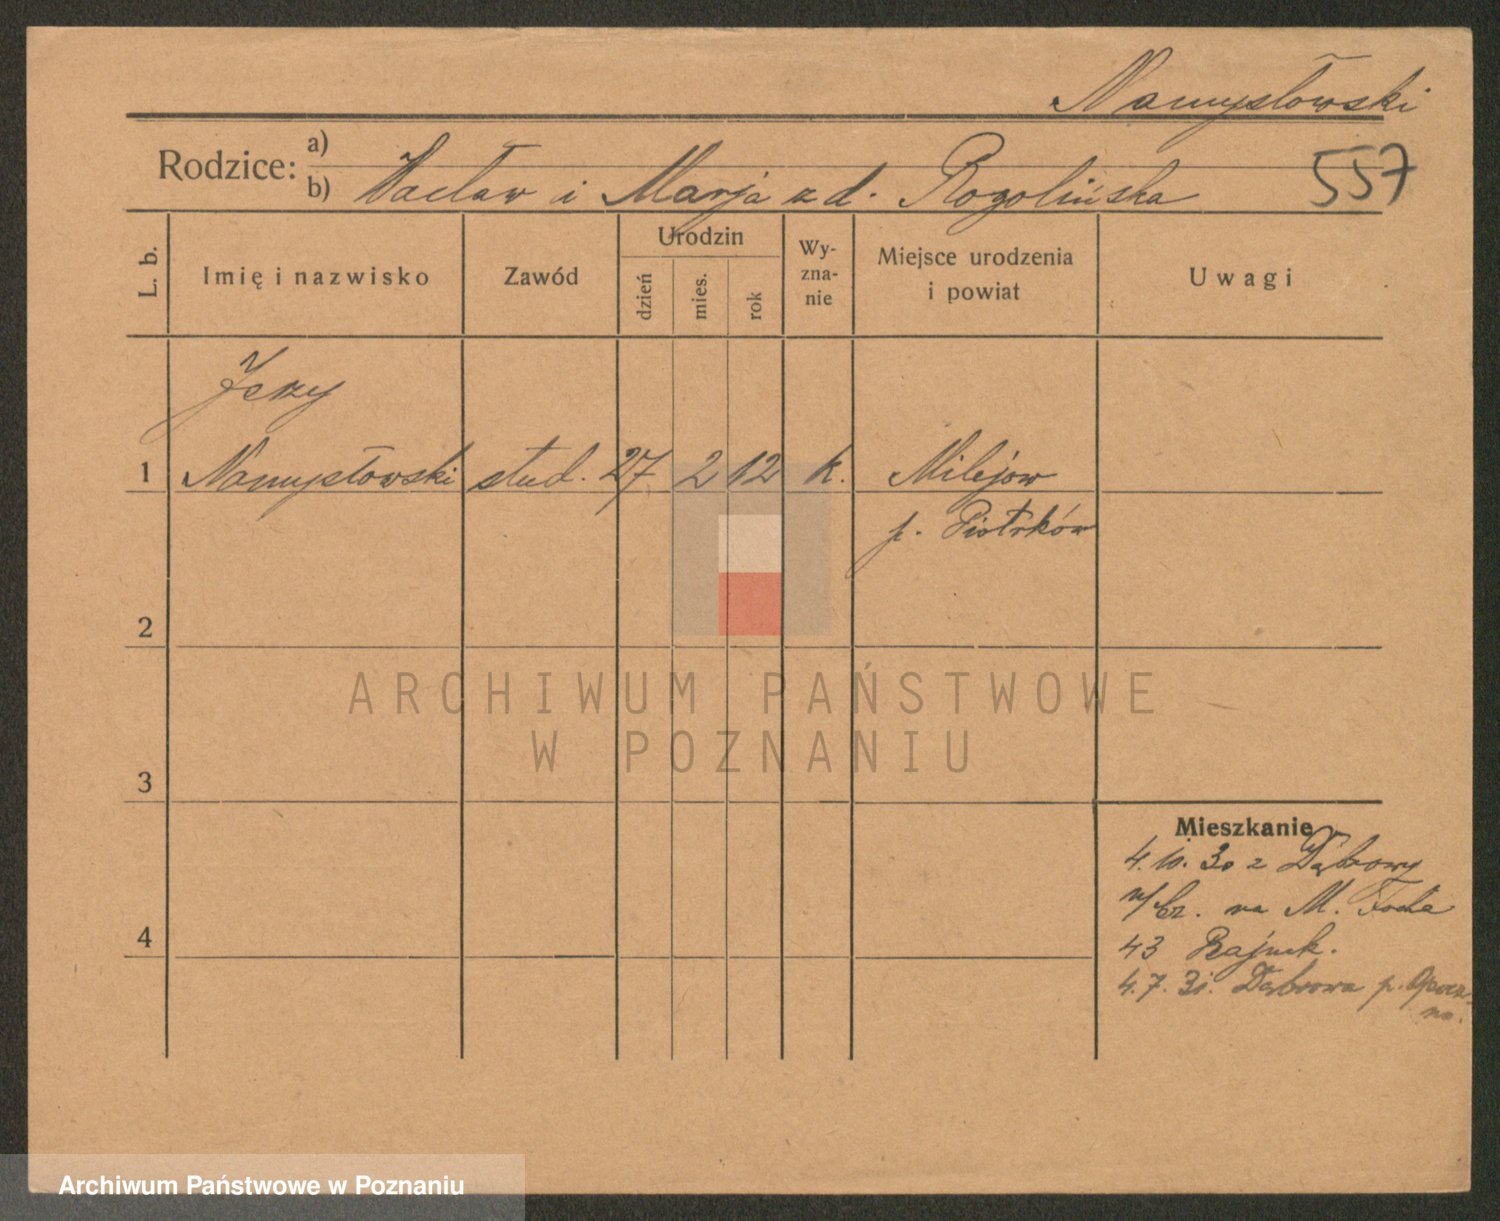 Namysłowski
Rodzice: a)
b) Wacław i Marja z d. Rogolińska
557
L. b.
Imię i nazwisko
Zawód
Urodzin
dzień
mies.
rok
Wy-
zna-
nie
Miejsce urodzenia
i powiat
Uwagi
Jerzy
1 Namysłowski stud. 27 2 12 k. Milejow
p. Piotrków
2
3
4
Mieszkanie
4.10.30 z Dąbrowy
n/Cz. na M. Focha
43 Rajnek.
4.7.31. Dąbrowa p. Opocz-
no.
ARCHIWUM PAŃSTWOWE
W POZNANIU
Archiwum Państwowe w Poznaniu